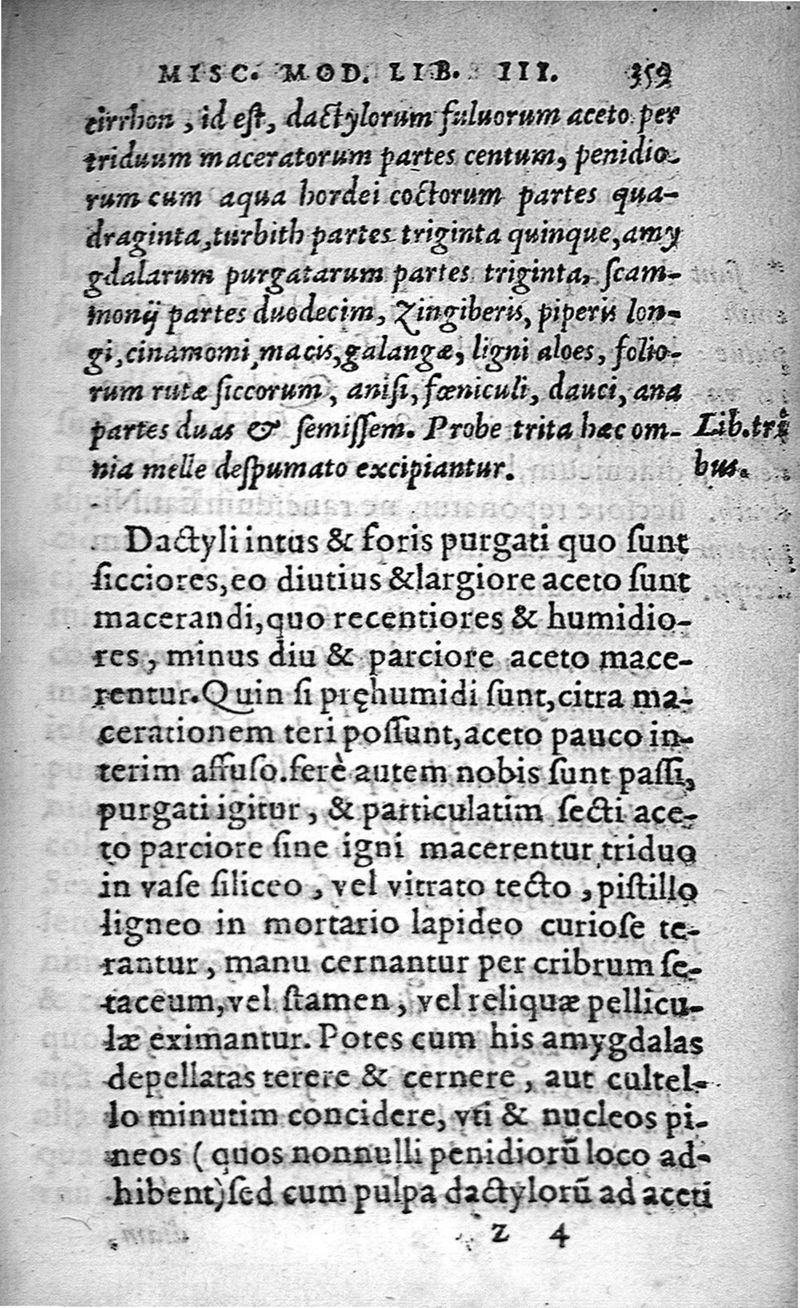 MISC. MOD. LIB. III. 359
cirrhon, id est, dactylorum fuluorum aceto per
triduum maceratorum partes centum, penidio-
rum cum aqua hordei coctorum partes qua-
draginta, turbith partes triginta quinque, amy
gdalarum purgatarum partes triginta, scam-
monij partes duodecim, Zingiberis, piperis lon-
gi, cinamomi, macis, galangæ, ligni aloes, folio-
rum rutæ siccorum, anisi, fœniculi, dauci, ana
partes duas & semissem. Probe trita hæc om-
nia melle despumato excipiantur.
Lib. tri
bus.
Dactyli intus & foris purgati quo sunt
sicciores, eo diutius & largiore aceto sunt
macerandi, quo recentiores & humidio-
res, minus diu & parciore aceto mace-
rentur. Quin si pręhumidi sunt, citra ma-
cerationem teri possunt, aceto pauco in-
terim affuso. ferè autem nobis sunt passi,
purgati igitur, & particulatim secti ace-
to parciore sine igni macerentur triduo
in vase siliceo, vel vitrato tecto, pistillo
ligneo in mortario lapideo curiose te-
rantur, manu cernantur per cribrum se-
taceum, vel stamen, vel reliquæ pellicu-
læ eximantur. Potes cum his amygdalas
depellatas terere & cernere, aut cultel-
lo minutim concidere, vti & nucleos pi-
neos (quos nonnulli penidiorū loco ad-
hibent) sed cum pulpa dactylorū ad aceti
Z 4